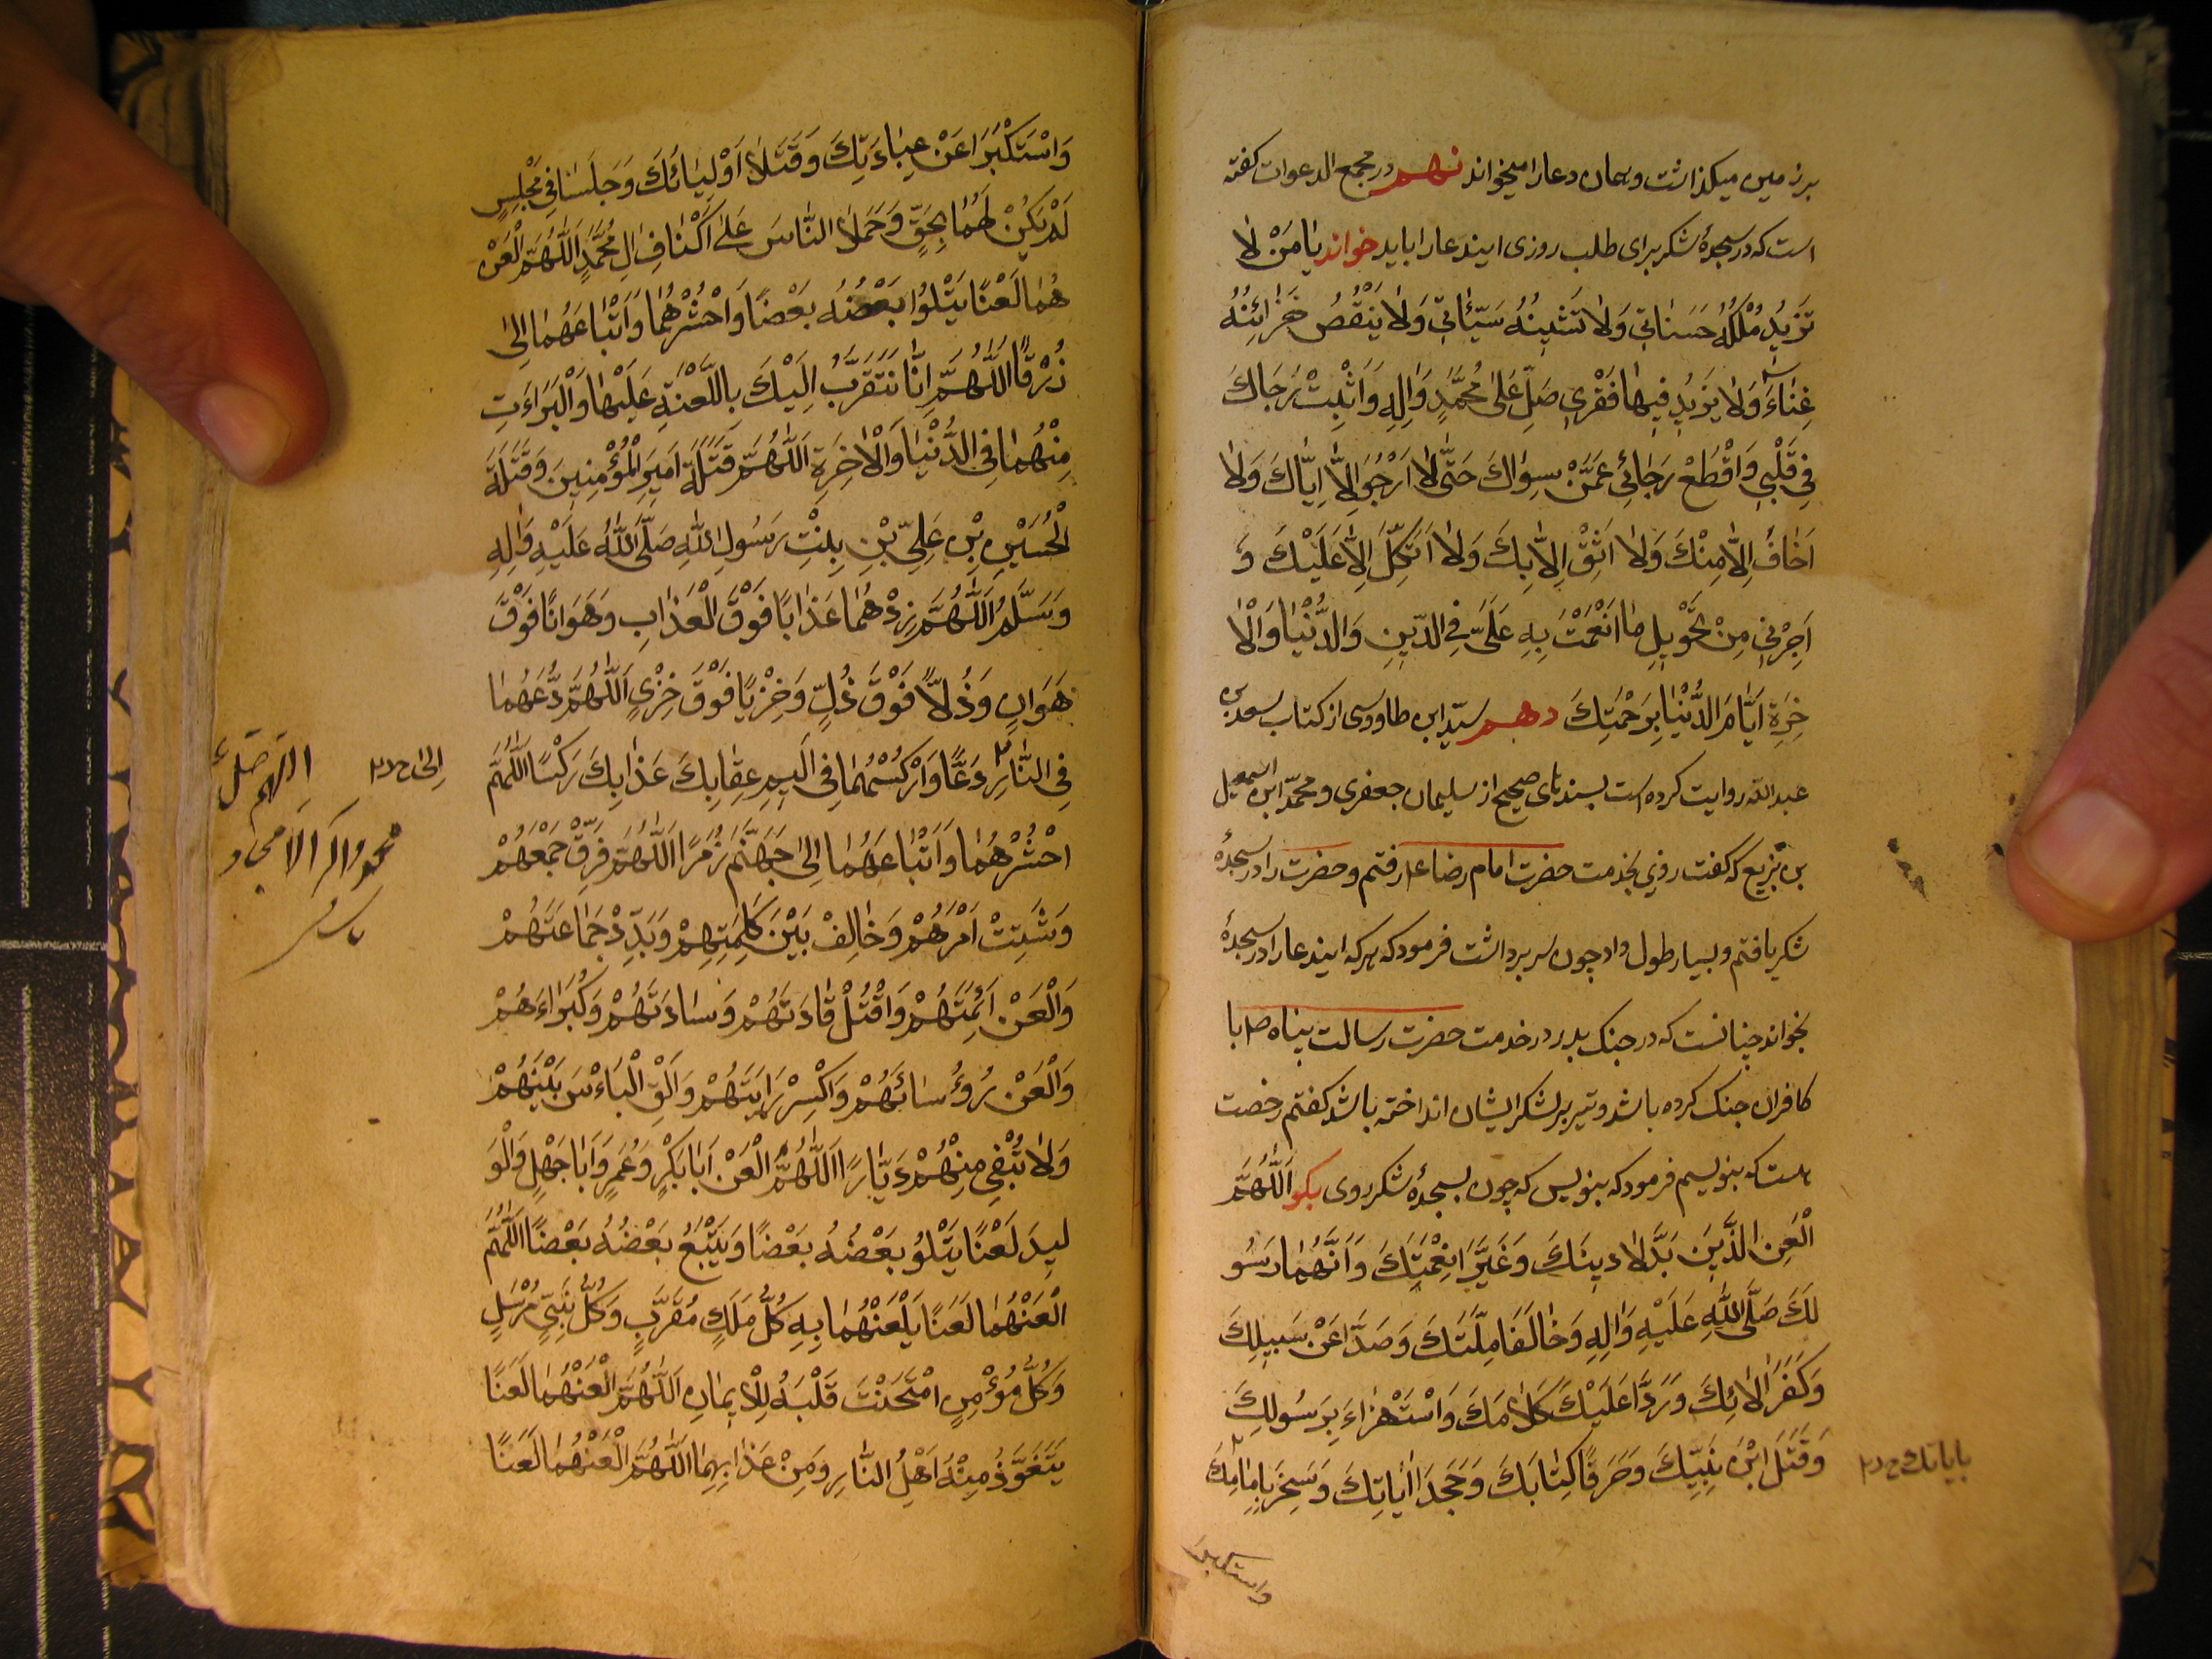 برزمین میکذاشت و همان دعا را میخواند نهم در مجمع الدعوات کفته
است که در سجدهٔ شکر برای طلب روزی ایندعا را باید خواند یٰا مَنْ لٰا
تَزیدُ مُلْکَهُ حَسَنٰاتی وَلٰا تَشینُهُ سَیِّئٰاتی وَلٰا یَنْقُصُ خَزٰائِنُهُ
غِنٰاءَ وَلٰا یَزیدُ فیهٰا فَقْری صَلِّ عَلیٰ مُحَمَّدٍ وَاٰلِهِ وَاَثْبِتْ رَجٰاكَ
فی قَلْبی وَاقْطَعْ رَجٰائی عَمَّنْ سِوٰاكَ حَتّٰی لٰا اَرْجُوَ اِلّٰا اِیّٰاكَ وَلٰا
اَخٰافَ اِلّٰا مِنْكَ وَلٰا اَثِقَ اِلّٰا بِكَ وَلٰا اَتَّكِلَ اِلّٰا عَلَیْكَ وَ
اَجِرْنی مِنْ تَحْویلِ مٰا اَنْعَمْتَ بِهِ عَلَیَّ فِی الدّینِ وَالدُّنْیٰا وَالْاٰ
خِرَةِ اَیّٰامَ الدُّنْیٰا بِرَحْمَتِكَ دهم سیّد ابن طاووس از کتاب سعد بن
عبد الله روایت کرده است بسندهای صحیح از سلیمان جعفری و محمّد ابن اسمعیل
بن بزیع که کفت روزی بخدمت حضرت امام رضا ع رفتم و حضرت را در سجدهٔ
شکر یافتم و بسیار طول داد چون سر برداشت فرمود که هر که ایندعا را در سجدهٔ
بخواند چنانست که در جنک بدر در خدمت حضرت رسالت پناه ص با
کافران جنک کرده باشد و تیر بر لشکر ایشان انداخته باشد کفتم رخصت
هست که بنویسم فرمود که بنویس که چون بسجدهٔ شکر روی بکو اَللّٰهُمَّ
الْعَنِ الَّذَیْنَ بَدَّلٰا دینَكَ وَغَیَّرَا نِعْمَتَكَ وَاتَّهَمٰا رَسُو
لَكَ صَلَّی اللهُ عَلَیْهِ وَاٰلِهِ وَخٰالَفٰا مِلَّتَكَ وَصَدَّا عَنْ سَبیلِكَ
وَكَفَرَا اٰلٰائِكَ وَرَدَّا عَلَیْكَ كَلٰامَكَ وَاسْتَهْزَاءَ بِرَسُولِكَ
وَقَتَلَا ابْنَ نَبِیِّكَ وَحَرَّفَا كِتٰابَكَ وَجَحَدَا اٰیٰاتِكَ وَسَخِرَا بِاِمٰامِكَ
باٰیاتك
واستکبرا
وَاسْتَكْبَرَا عَنْ عِبٰادَتِكَ وَقَتَلٰا اَوْلِیٰائَكَ وَجَلَسٰا فی مَجْلِسٍ
لَمْ یَكُنْ لَهُمٰا بِحَقٍّ وَحَمَلٰا النّٰاسَ عَلیٰ اَكْتٰافِ اٰلِ مُحَمَّدٍ اَللّٰهُمَّ الْعَنْ
هُمٰا لَعْنًا یَتْلُوا بَعْضُهُ بَعْضًا وَاحْشُرْهُمٰا وَاَتْبٰاعَهُمٰا اِلیٰ
زُرْقًا اَللّٰهُمَّ اِنّٰا نَتَقَرَّبُ اِلَیْكَ بِاللَّعْنَةِ عَلَیْهِمٰا وَالْبَرٰاءَتِ
مِنْهُمٰا فِی الدُّنْیٰا وَالْاٰخِرَةِ اَللّٰهُمَّ قَتَلَةَ اَمیرِ الْمُؤْمِنینَ وَقَتَلَةَ
الْحُسَیْنِ بْنِ عَلِیِّ بْنِ بِنْتِ رَسُولِ اللهِ صَلَّی اللهُ عَلَیْهِ وَاٰلِهِ
وَسَلَّمَ اَللّٰهُمَّ زِدْهُمٰا عَذٰابًا فَوْقَ الْعَذٰابِ وَهَوَانًا فَوْقَ
هَوَانٍ وَذُلًّا فَوْقَ ذُلٍّ وَخِزْیًا فَوْقَ خِزْیٍ اَللّٰهُمَّ دُعَّهُمٰا
فِی النّٰارِ دَعًّا وَارْكُسْهُمٰا فی اَلیمِ عِقٰابِكَ عَذٰابِكَ رَكْسًا اَللّٰهُمَّ
احْشُرْهُمٰا وَاَتْبٰاعَهُمٰا اِلیٰ جَهَنَّمَ زُمَرًا اَللّٰهُمَّ فَرِّقْ جَمْعَهُمْ
وَشَتِّتْ اَمْرَهُمْ وَخٰالِفْ بَیْنَ كَلِمَتِهِمْ وَبَدِّدْ جَمٰاعَتَهُمْ
وَالْعَنْ اَئِمَّتَهُمْ وَاقْتُلْ قٰادَتَهُمْ وَسٰادَتَهُمْ وَكُبَرٰاءَهُمْ
وَالْعَنْ رُؤُسٰائَهُمْ وَاكْسِرْ رٰایَتَهُمْ وَاَلْقِ الْبَاْسَ بَیْنَهُمْ
وَلٰا تُبْقِ مِنْهُمْ دَیّٰارًا اَللّٰهُمَّ الْعَنْ اَبٰا بَكْرٍ وَعُمَرٍ وَاَبٰا جَهْلٍ وَالْوَ
لیدَ لَعْنًا یَتْلُو بَعْضُهُ بَعْضًا وَیَتْبَعُ بَعْضُهُ بَعْضًا اَللّٰهُمَّ
الْعَنْهُمٰا لَعْنًا یَلْعَنْهُمٰا بِهِ كُلُّ مَلَكٍ مُقَرَّبٍ وَكُلُّ نَبِیٍّ مُرْسَلٍ
وَكُلُّ مُؤْمِنٍ امْتَحَنْتَ قَلْبَهُ لِلْایمٰانِ اَللّٰهُمَّ الْعَنْهُمٰا لَعْنًا
یَتَعَوَّذُ مِنْهُ اَهْلُ النّٰارِ وَمِنْ عَذٰابِهِمٰا اَللّٰهُمَّ الْعَنْهُمٰا لَعْنًا
اِلیٰ
اللهم صل
محمد وال